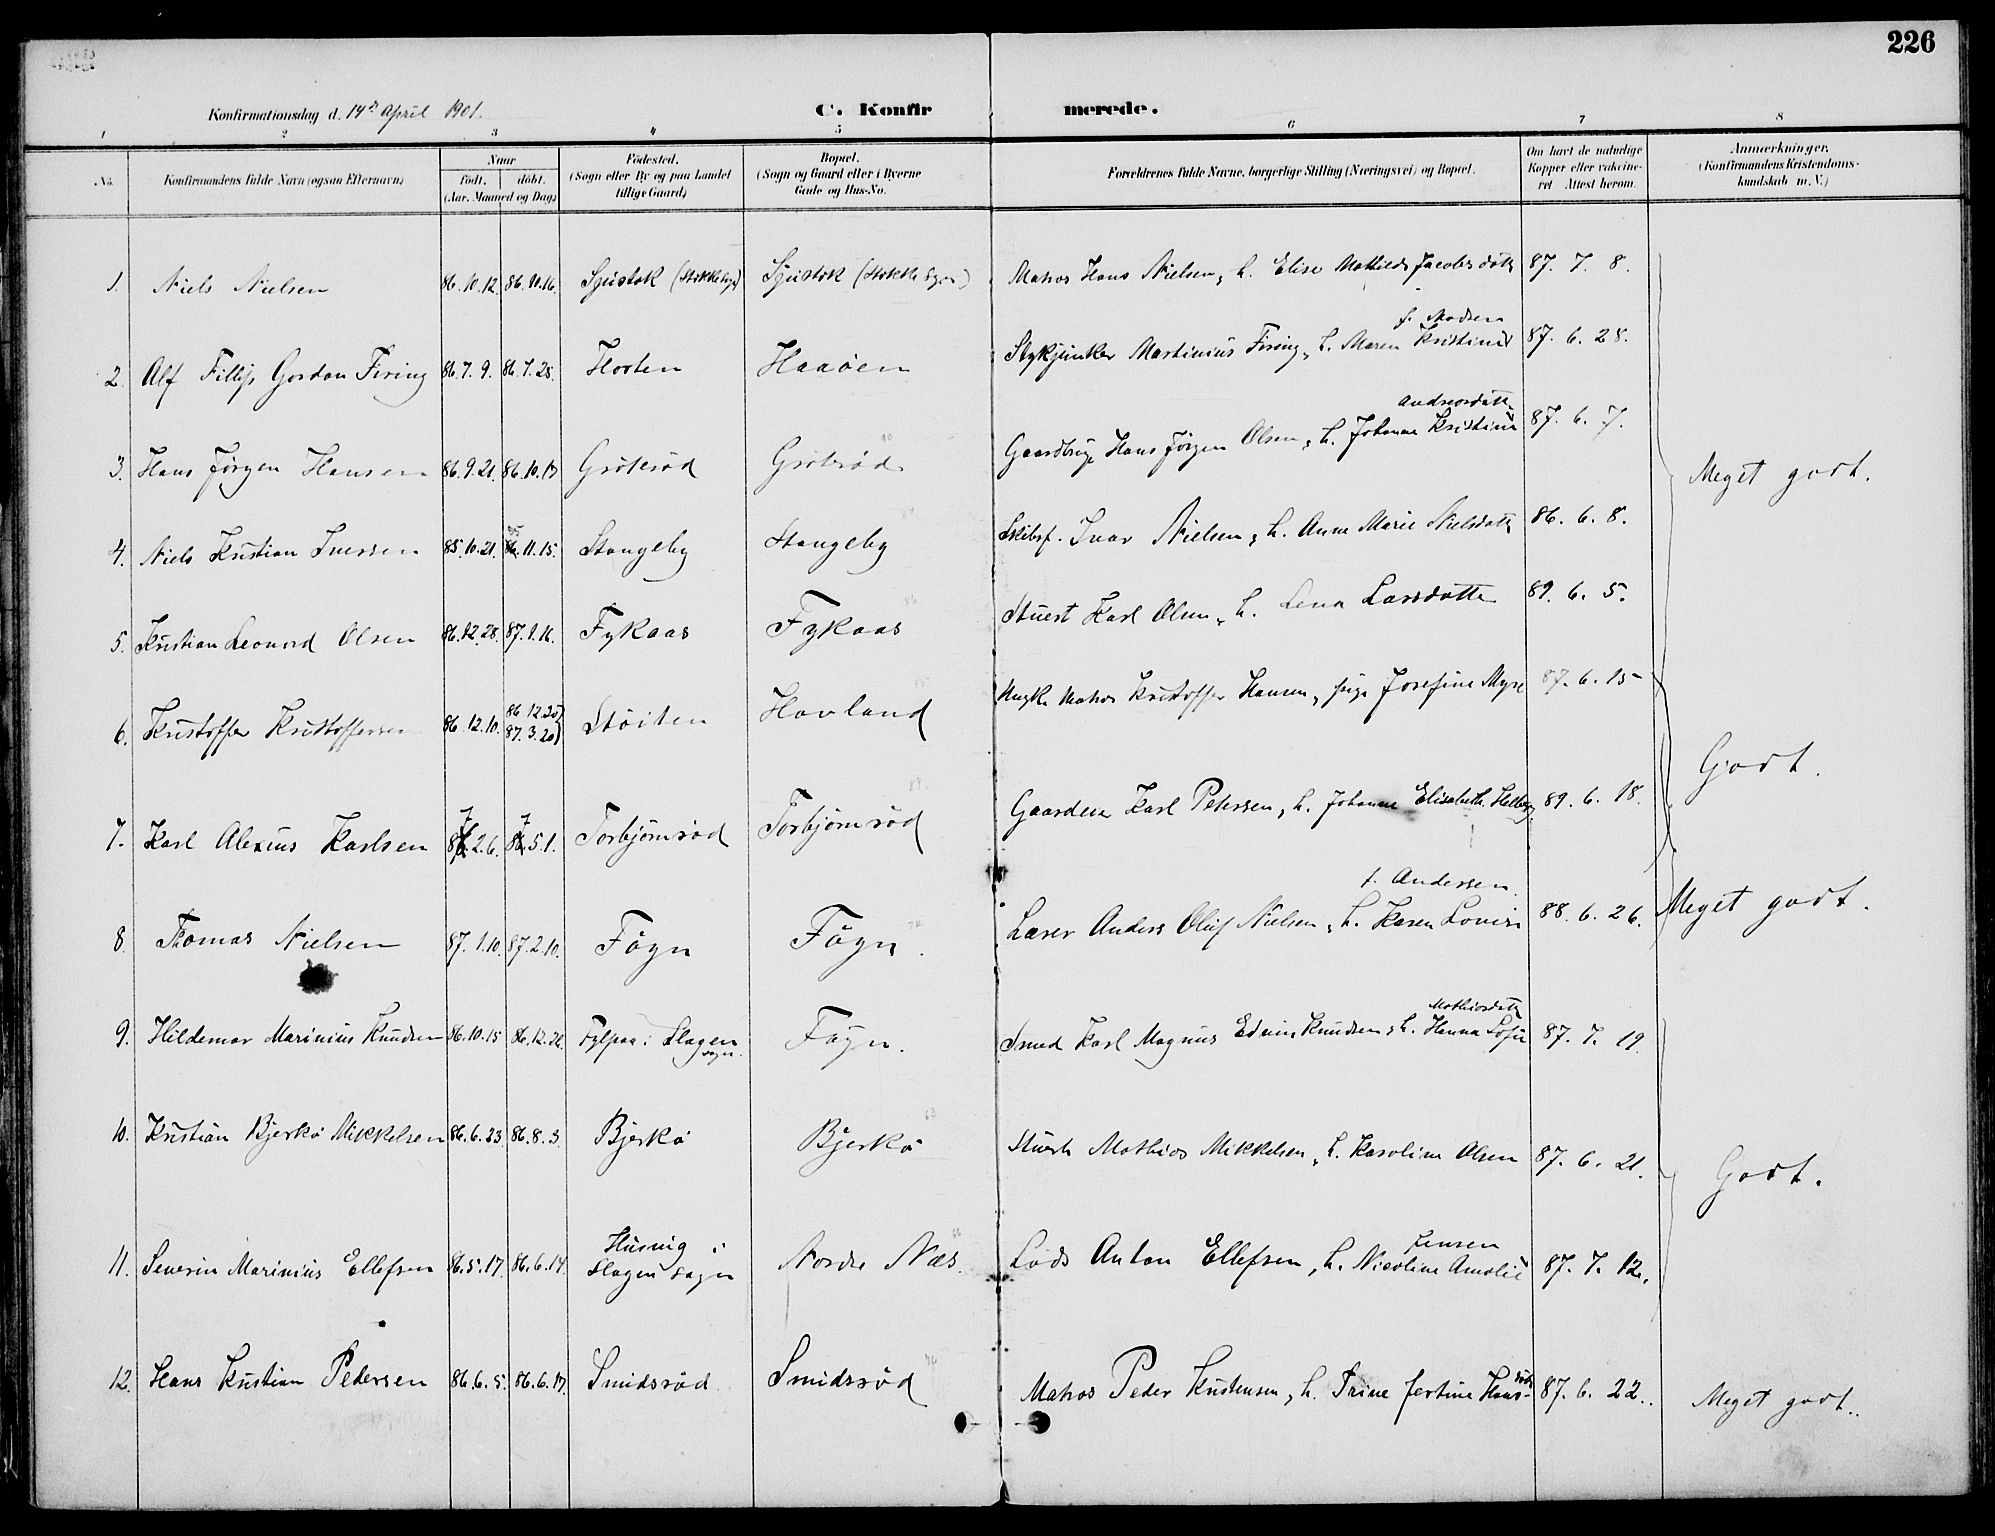 226
Konfirmationsdag d. 14de April 1901.
C. Konfirmerede.
1 2 3 4 5 6 7 8
No.
Konfirmandens fulde Navn (ogsaa Efternavn)
Naar
født. døbt.
(Aar, Maaned og Dag)
Fødested.
(Sogn eller By og paa Landet
tillige Gaard)
Bopæl.
(Sogn og Gaard eller i Byerne
Gade og Hus-No.
Forældrenes fulde Navne, borgerlige Stilling (Næringsvei) og Bopæl.
Om havt de naturlige
Kopper eller vaccine-
ret Attest herom.
Anmærkninger.
(Konfirmandens Kristendoms-
kundskab m. V.)
1. Niels Nielsen 86.10.12. 86.11.16. Sjustok (Stokke Sogn) Sjustok (Stokke Sogn) Matros Hans Nielsen, h. Elise Mathilde Jacobsdatt 87. 7. 8.
f. Madsen
2. Alf Fillip Gordon Firing 86.7.9. 86.7.25. Horten Haaøen Stykjunker Martinius Firing, h. Maren Kristine 87. 6. 28.
Andreasdatt
3. Hans Jørgen Hansen 86.9.21. 86.10.17 Grøterød Grøterød Gaardbrug Hans Jørgen Olsen, h. Johanne Kristine 87. 6. 7.
Meget godt.
4. Niels Kristian Iversen 85.10.21. 85 11.15. Stangeby Stangeby Skibsf. Ivar Nielsen, h. Anne Marie Nielsdatt 86. 6. 8.
5. Kristian Leonard Olsen 86.12.28. 87.1.16. Fykaas Fykaas Stuert Karl Olsen, h. Lena Larsdatte 89. 6. 5.
6. Kristoffer Kristoffersen 86.12.10. 86 12.25) 87.3.20) Støiten Hovland Ungk. Matros Kristoffer Hansen, pige Josefine Myre 87. 6. 15
Godt.
7. Karl Alexius Karlsen 87.2.6. 87.5.1. Torbjørnrød Torbjørnrød Gaardeier Karl Petersen, h. Johanne Elisabeth Helberg 89. 6. 18.
f. Andersen
8. Thomas Nielsen 87.1.10. 87.2.10. Føyn Føyn. Lærer Anders Oluf Nielsen, h. Karen Lovise 88. 6. 26. Meget godt.
Mathiasdatt
9. Hildemar Marinius Knudsen 86.10.15 86.12.26. Fylpaa i Slagen sogn. Føyn. Smed Karl Magnus Edvin Knudsen, h. Hanna Sofie 87. 7. 19.
10. Kristian Bjerkø Mikkelsen 86.6.23. 86.8.3. Bjerkø Bjerkø Stuert Mathias Mikkelsen, h. Karoline Olsen 87. 6. 21.
Godt.
Jensen
11. Severin Marinius Ellefsen 86.5.17. 86.6.14. Husvig i Slagen sogn Nordre Næs. Lods Anton Ellefsen, h. Nicoline Amalie 87. 7. 12.
12. Hans Kristian Pedersen 86.6.5. 86.6.17. Smidsrød Smidsrød Matros Peder Kristensen, h. Trine Jertine Hans- 87. 6. 22. Meget godt.